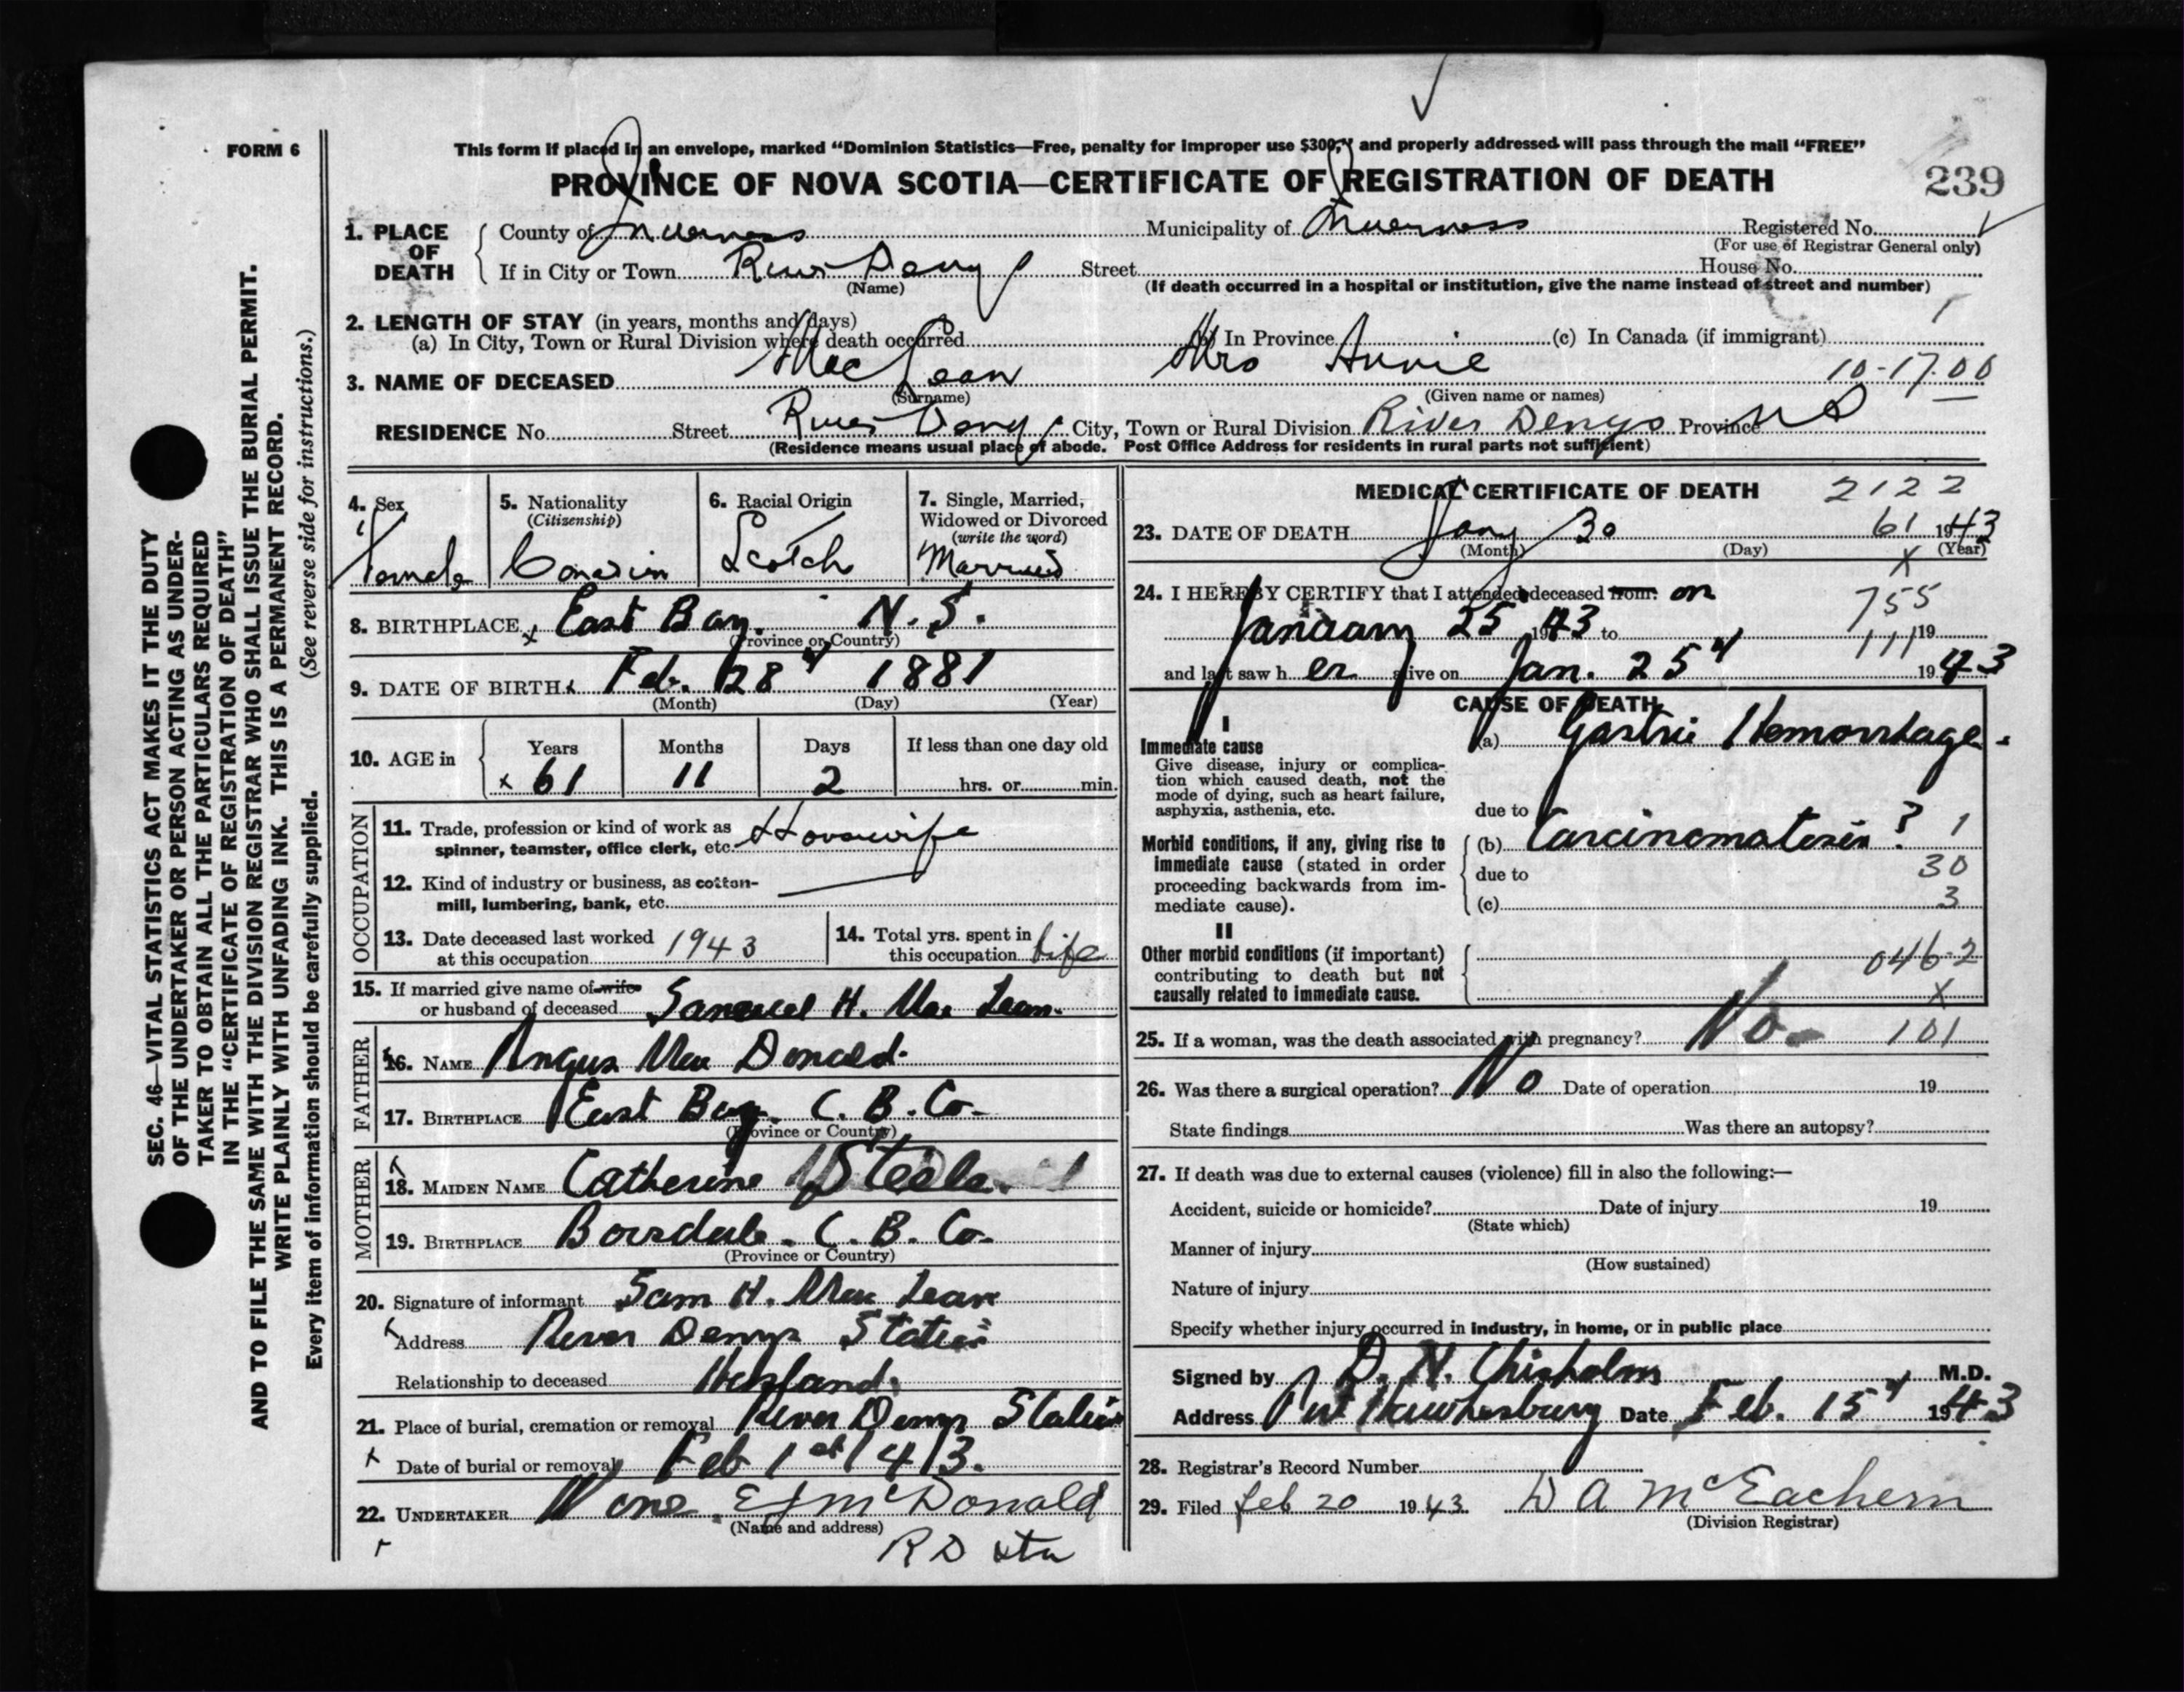 FORM 6
This form if placed in an envelope, marked “Dominion Statistics—Free, penalty for improper use $300,” and properly addressed will pass through the mail “FREE”
PROVINCE OF NOVA SCOTIA—CERTIFICATE OF REGISTRATION OF DEATH
239
1. PLACE OF DEATH
County of Inverness Municipality of Inverness Registered No.
(For use of Registrar General only)
If in City or Town River Denys Street House No.
(Name) (If death occurred in a hospital or institution, give the name instead of street and number)
2. LENGTH OF STAY (in years, months and days)
(a) In City, Town or Rural Division where death occurred (b) In Province (c) In Canada (if immigrant)
1
3. NAME OF DECEASED MacLean Mrs Annie 10-17.00
(Surname) (Given name or names)
RESIDENCE No. Street River Denys City, Town or Rural Division River Denys Province N S
(Residence means usual place of abode. Post Office Address for residents in rural parts not sufficient)
4. Sex
Female
5. Nationality
(Citizenship)
Canadian
6. Racial Origin
Scotch
7. Single, Married,
Widowed or Divorced
(write the word)
Married
8. BIRTHPLACE x East Bay. N.S.
(Province or Country)
9. DATE OF BIRTH x Feb. 28th 1881
(Month) (Day) (Year)
10. AGE in
Years Months Days If less than one day old
x 61 11 2 hrs. or min.
OCCUPATION
11. Trade, profession or kind of work as
spinner, teamster, office clerk, etc. Housewife
12. Kind of industry or business, as cotton-
mill, lumbering, bank, etc.
13. Date deceased last worked
at this occupation 1943
14. Total yrs. spent in
this occupation life
15. If married give name of wife
or husband of deceased Samuel H. Mac Lean.
FATHER
16. NAME Angus Mac Donald.
17. BIRTHPLACE East Bay. C. B. Co.
(Province or Country)
MOTHER
18. MAIDEN NAME Catherine Steele.
19. BIRTHPLACE Boisdale. C. B. Co.
(Province or Country)
20. Signature of informant Sam H. Mac Lean
Address River Denys Station
Relationship to deceased Husband.
21. Place of burial, cremation or removal River Denys Station
x Date of burial or removal Feb 1st 43.
22. UNDERTAKER None. E J McDonald
(Name and address)
R D Sta
MEDICAL CERTIFICATE OF DEATH 2122
23. DATE OF DEATH Jany 30 61 1943
(Month) (Day) x (Year)
24. I HEREBY CERTIFY that I attended deceased from: on 755
January 25 1943 to 111 19
and last saw her alive on Jan. 25th 1943
CAUSE OF DEATH
I
Immediate cause (a) Gastric Hemorrhage.
Give disease, injury or complica-
tion which caused death, not the
mode of dying, such as heart failure,
asphyxia, asthenia, etc.
due to
Morbid conditions, if any, giving rise to
immediate cause (stated in order
proceeding backwards from im-
mediate cause).
(b) Carcinomatosis ? 1
due to 30
(c) 3
II
Other morbid conditions (if important)
contributing to death but not
causally related to immediate cause.
046-2
x
25. If a woman, was the death associated with pregnancy? No- 101
26. Was there a surgical operation? No Date of operation 19
State findings Was there an autopsy?
27. If death was due to external causes (violence) fill in also the following:—
Accident, suicide or homicide? Date of injury 19
(State which)
Manner of injury
(How sustained)
Nature of injury
Specify whether injury occurred in industry, in home, or in public place
Signed by D. N. Chisholm M.D.
Address Port Hawkesbury Date Feb. 15th 1943
28. Registrar’s Record Number
29. Filed Feb 20 1943 D A McEachern
(Division Registrar)
SEC. 46—VITAL STATISTICS ACT MAKES IT THE DUTY
OF THE UNDERTAKER OR PERSON ACTING AS UNDER-
TAKER TO OBTAIN ALL THE PARTICULARS REQUIRED
IN THE “CERTIFICATE OF REGISTRATION OF DEATH”
AND TO FILE THE SAME WITH THE DIVISION REGISTRAR WHO SHALL ISSUE THE BURIAL PERMIT.
WRITE PLAINLY WITH UNFADING INK. THIS IS A PERMANENT RECORD.
Every item of information should be carefully supplied. (See reverse side for instructions.)